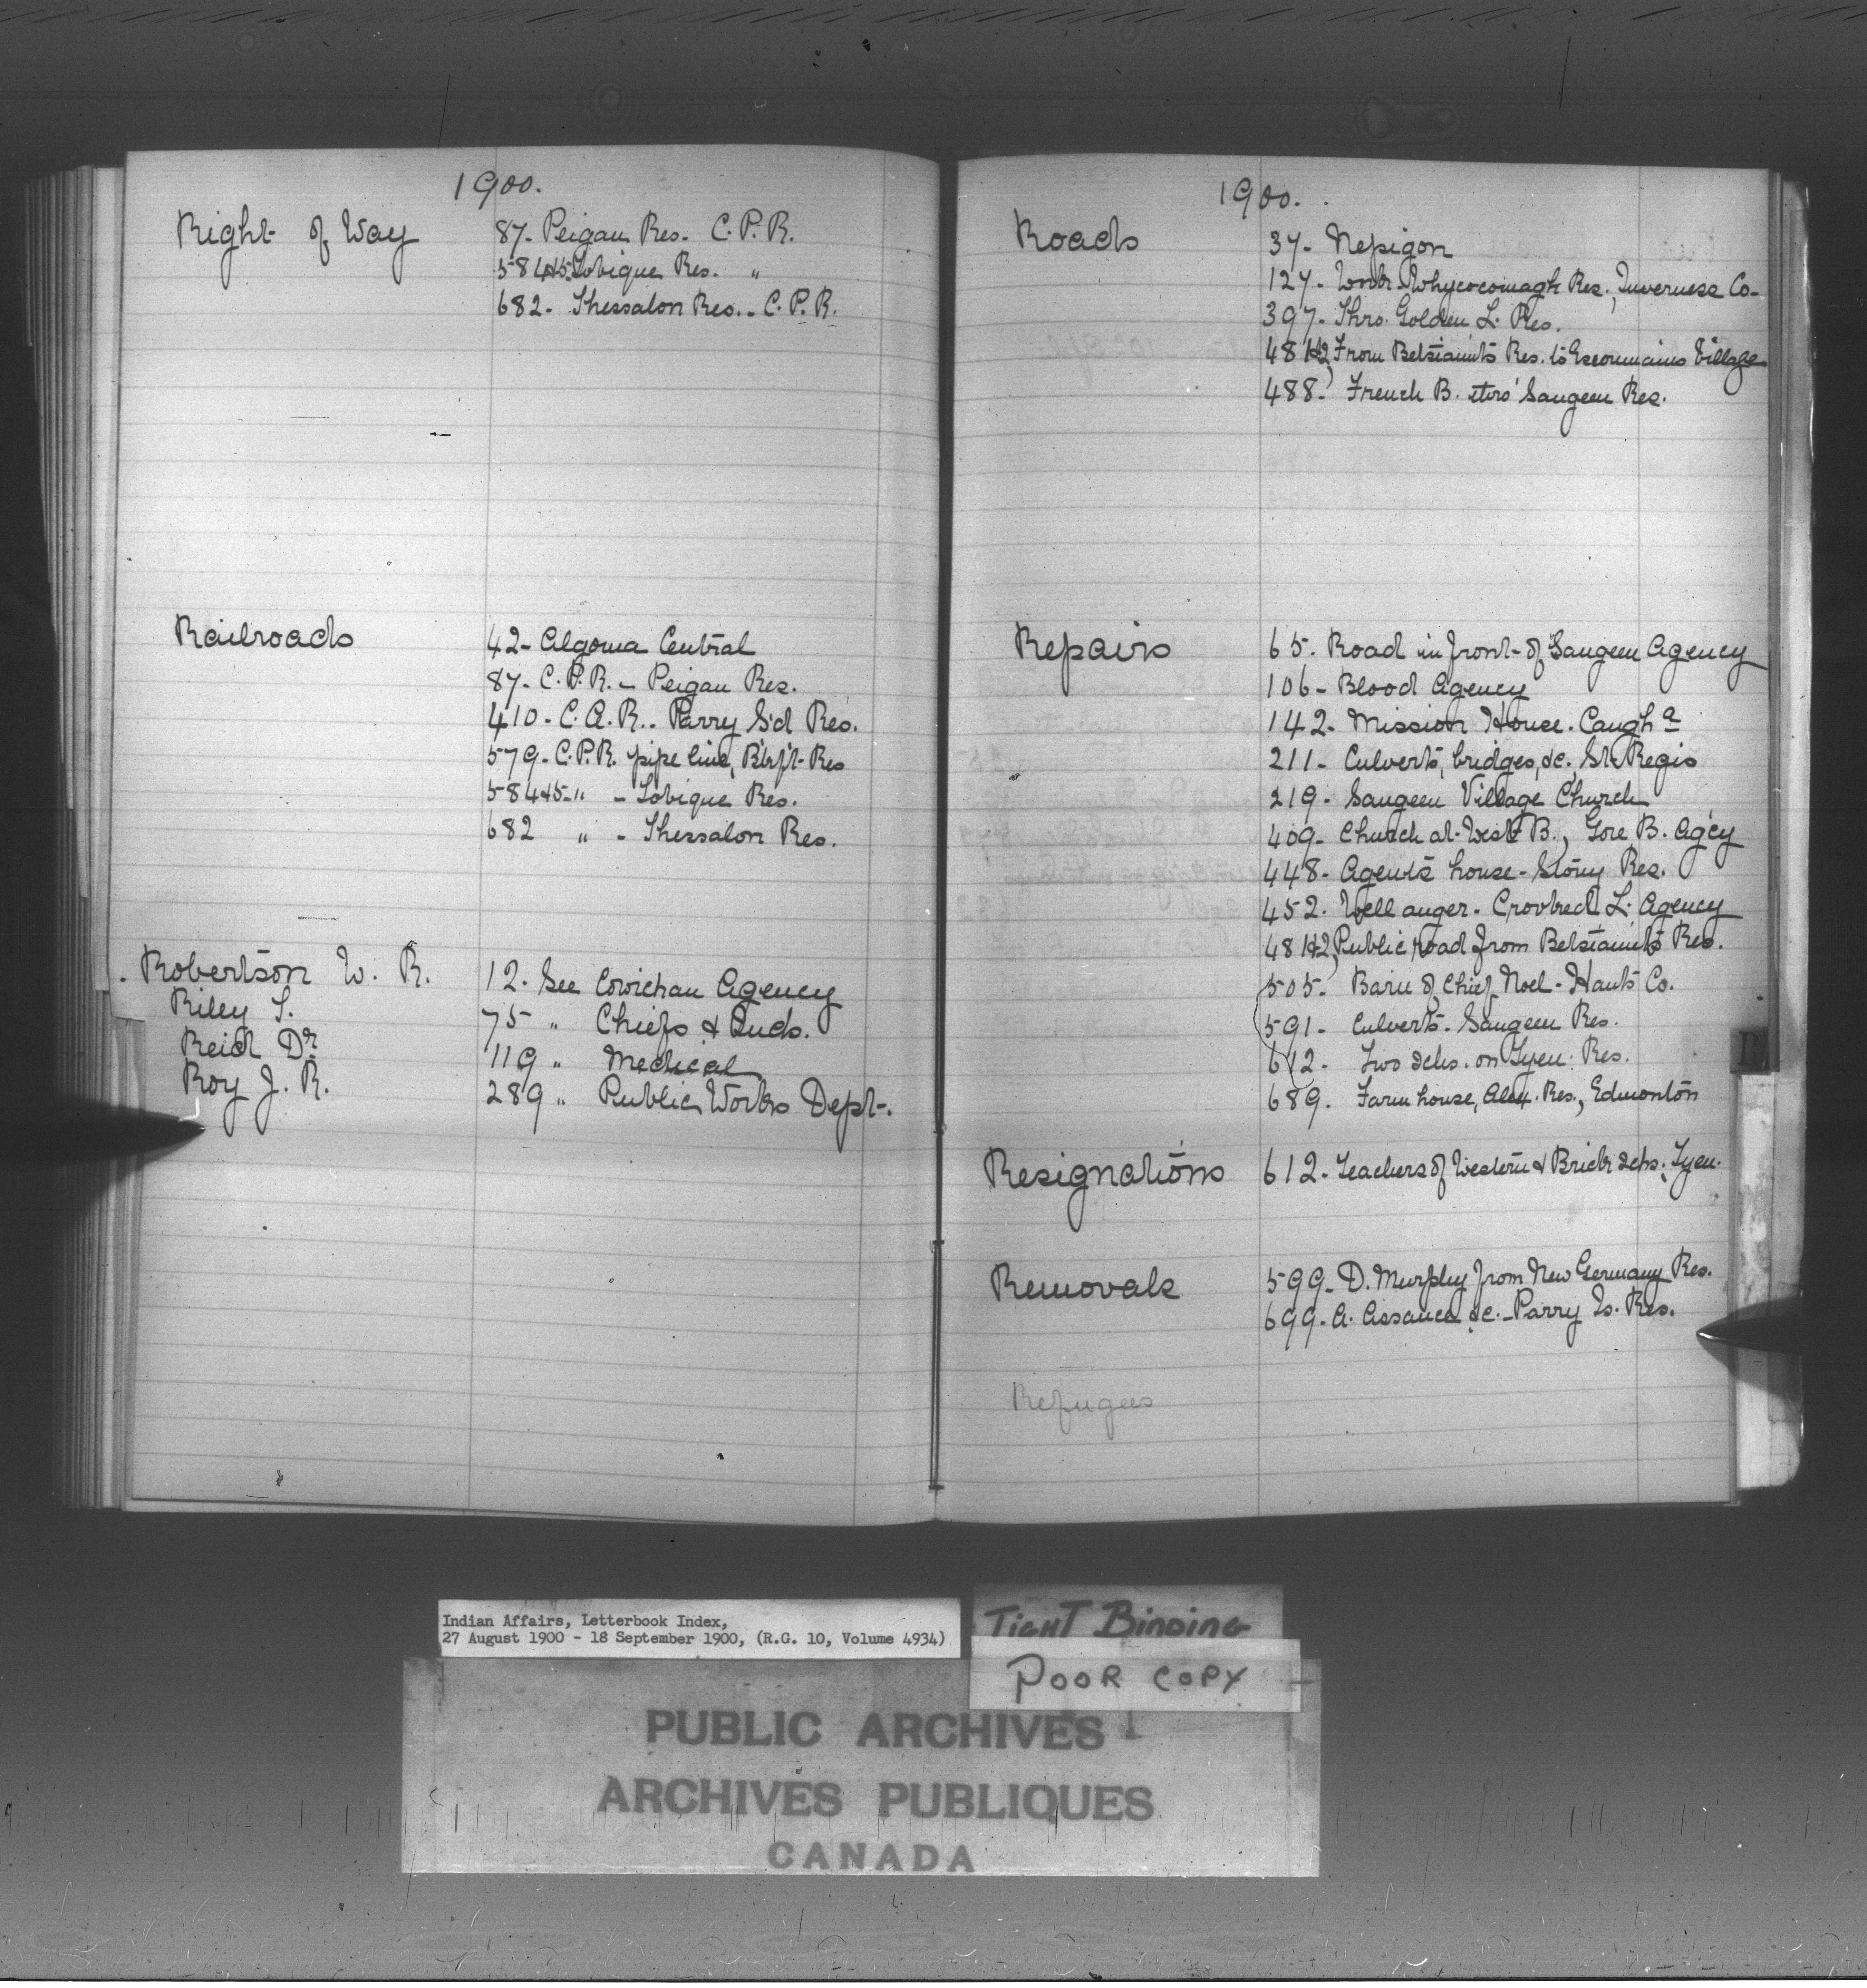 1900.
Right of Way
87- Peigan Res. C.P.R.
584&5- Tobique Res. "
682- Thessalon Res.- C.P.R.
Railroads
42- Algoma Central
87- C.P.R.- Peigan Res.
410- C.A.R.- Parry S'd Res.
579- C.P.R. pipe line, Res
584&5- " - Tobique Res.
682 " - Thessalon Res.
Robertson W. R.
12. See Cowichan Agency
Riley T.
75 " Chiefs & Inds.
Reid Dr.
119 " Medical
Roy J. R.
289 " Public Works Dept.
1900.
Roads
37- Nepigon
127- Work Whycocomagh Res., Inverness Co-
397- Thro. Golden L. Res.
481&2, From Betsiamits Res. to Escoumains Village
488- French B. thro' Saugeen Res.
Repairs
65. Road in front of Saugeen Agency
106- Blood Agency
142- Mission House. Caugha
211- Culverts, bridges, &c., St. Regis
219- Saugeen Village Church
409- Church at West B., Gore B. Ag'cy
448- Agent's house- Stony Res.
452. Well auger- Crooked L. Agency
481&2, Public road from Betsiamits Res.
505- Barn of Chief Noel- Hants Co.
591- Culverts- Saugeen Res.
612- Two schs. on Tyen: Res.
689. Farm house, Alex. Res., Edmonton
Resignations
612- Teachers of Western & Brick schs., Tyen.
Removals
599- D. Murphy from New Germany Res.
699- A. Assance &c.- Parry Is. Res.
Refugees
R
Indian Affairs, Letterbook Index,
27 August 1900 - 18 September 1900, (R.G. 10, Volume 4934)
TIGHT BINDING
POOR COPY
PUBLIC ARCHIVES
ARCHIVES PUBLIQUES
CANADA